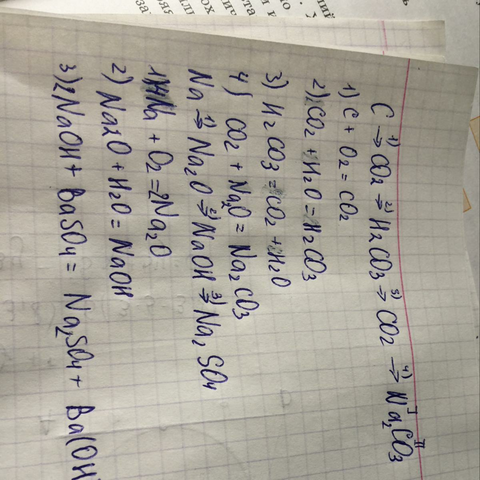 C →¹⁾ CO₂ →²⁾ H₂CO₃ →³⁾ CO₂ →⁴⁾ Na₂CO₃
1) C + O₂ = CO₂
2) CO₂ + H₂O = H₂CO₃
3) H₂CO₃ = CO₂ + H₂O
4) CO₂ + Na₂O = Na₂CO₃
Na →¹⁾ Na₂O →²⁾ NaOH →³⁾ Na₂SO₄
1) 4Na + O₂ = 2Na₂O
2) Na₂O + H₂O = NaOH
3) 2NaOH + BaSO₄ = Na₂SO₄ + Ba(OH